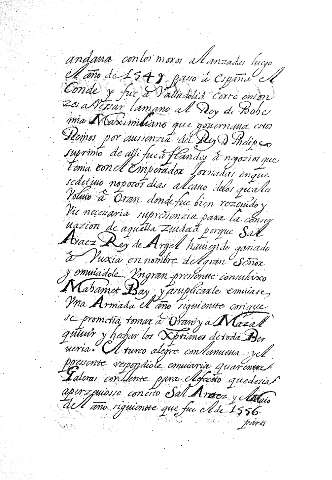 andaua con los moros aleanzados luego
el año de 1549 paso a España el
Conde y fue a Valladolid Corte enton
zes a Vezar la mano al Rey de Bohe
mia Maximiliano que gouernaua estos
Reinos por ausencia del Rey D Phelipe
suprimo de alli fue a flandes a negosios que
tenia con el Emperador Jornadas en que
se detuuo pozos dias al cauo de los quales
Voluio a Oran donde fue bien rezeuido y
fue necesaria su presencia para la conser
uacion de aquella Ziudad porque Sal
Araez Rey de Argel hauiendo ganado
a Vuxia en nombre del gran Señor
y embiadole Vn gran presente con su hixo
Mahamet Bay y a suplicarle embiase
Vna Armada el año siguiente con que
se prometia tomar a Oran y a Mazal
quiuir y hechar los Xptianos de toda Ber
ueria. El turco alegre con la nueua y el
presente respondiole embiaria quarenta
Galeras con gente para el efecto quedose
aperzeuioso con esto Sal Araez y
del año siguiente que fue el de 1556
para